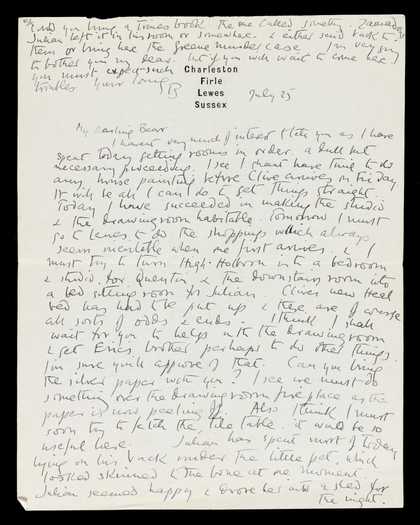 to bother you my dear. but if you will want to come here
you must expect such
troubles Your loving
B
Charleston
Firle
Lewes
Sussex
July 25
My darling Bear
I havent very much of interest to tell you as I have
spent today getting rooms in order, a dull but
necessary proceeding. I see I shant have time to do
any house painting before Clive arrives on Friday
It will be all I can do to get things straight.
Today I have succeeded in making the studio
& the drawingroom habitable. Tomorrow I must
go to Lewes to do the shoppings which always
seem inevitable when one first arrives. &
must try to turn High Holborn into a bedroom
& studio for Quentin & the downstairs room into
a bed sitting room for Julian. Clive's new steel
bed has to be put up & there are of course
all sorts of odds & ends. I think I shall
wait for you to help with the drawingroom
& get Eric's brother perhaps to do other things.
I'm sure you'll approve of that. Can you bring
the silver paper with you? I see we must do
something over the drawingroom fire place as the
paper is now peeling off. Also I think I must
soon try to fetch the tile table. it would be so
useful here. Julian has spent most of today
lying on his back under the little pet, which
looked skinned to the bone at one moment.
Julian seemed happy & drove her into a shed for
the night.